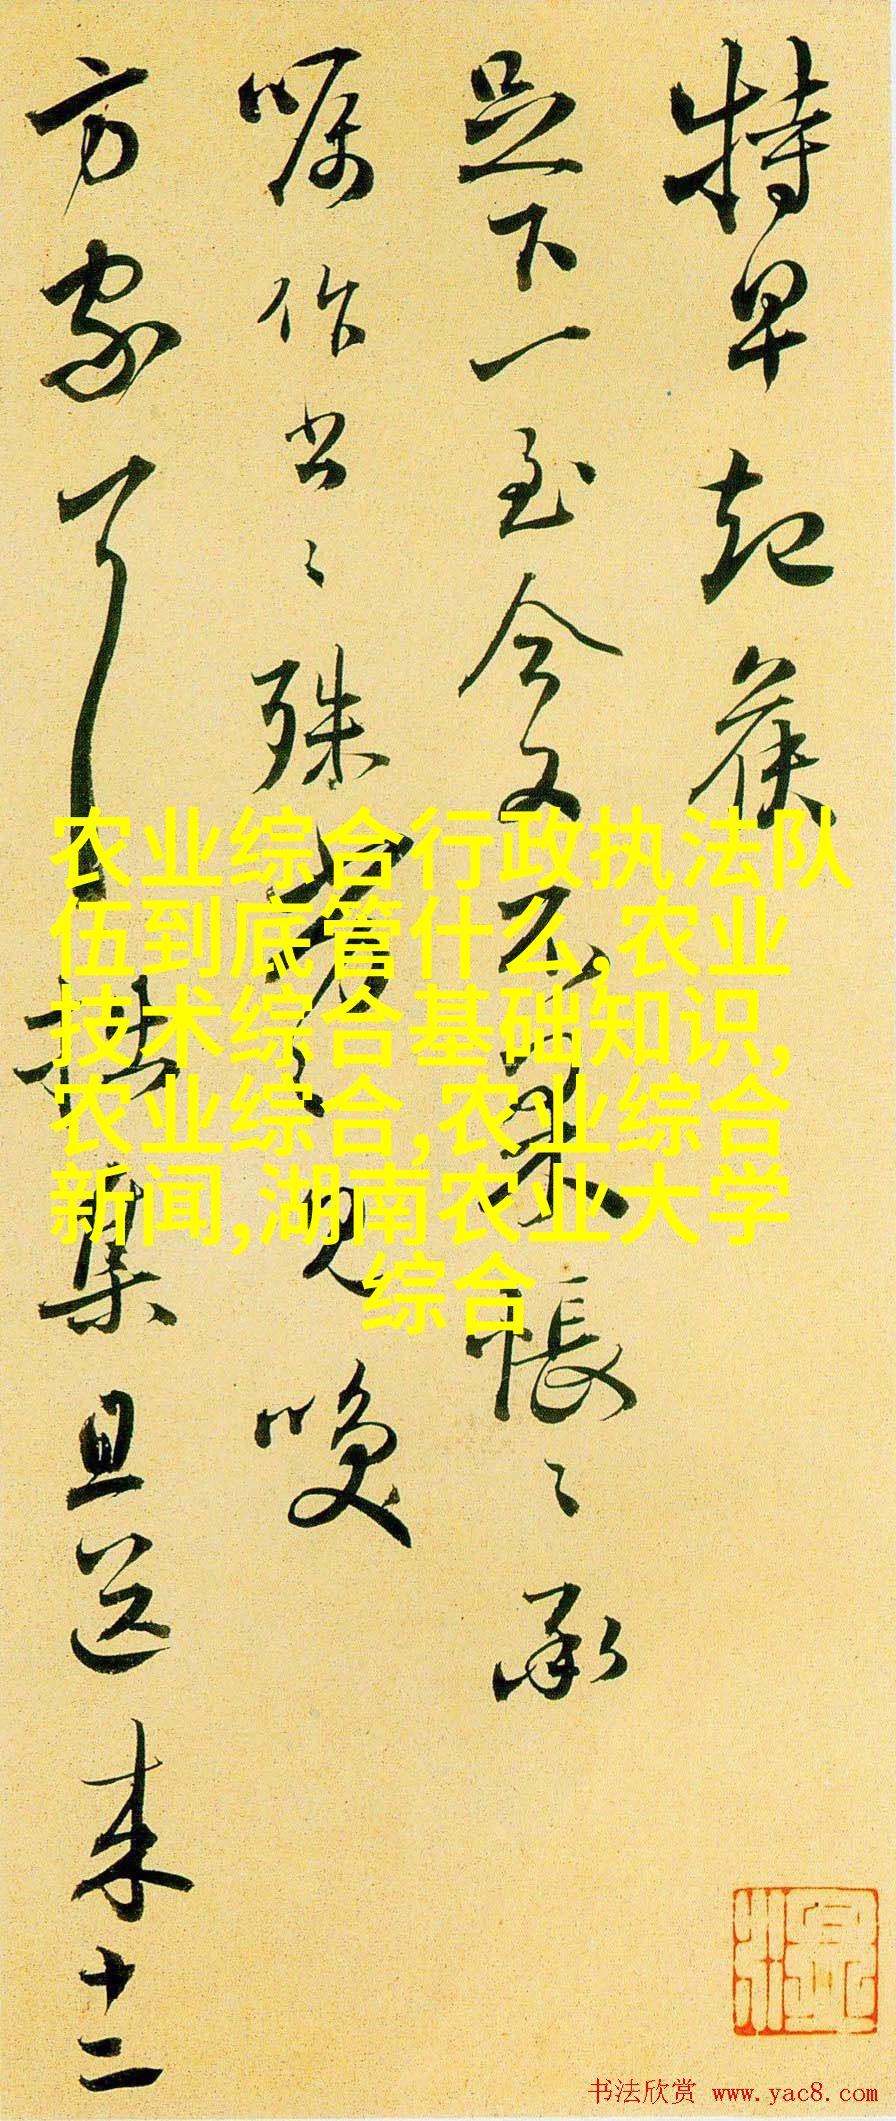 特早起候
足下一至今又不果帳〻承
嘱作书〻殊
见喚
方家
集且送来十二
农业综合行政执法队
伍到底管什么,农业
技术综合基础知识,
农业综合,农业综合
新闻,湖南农业大学
综合
书法欣赏 www.yac8.com